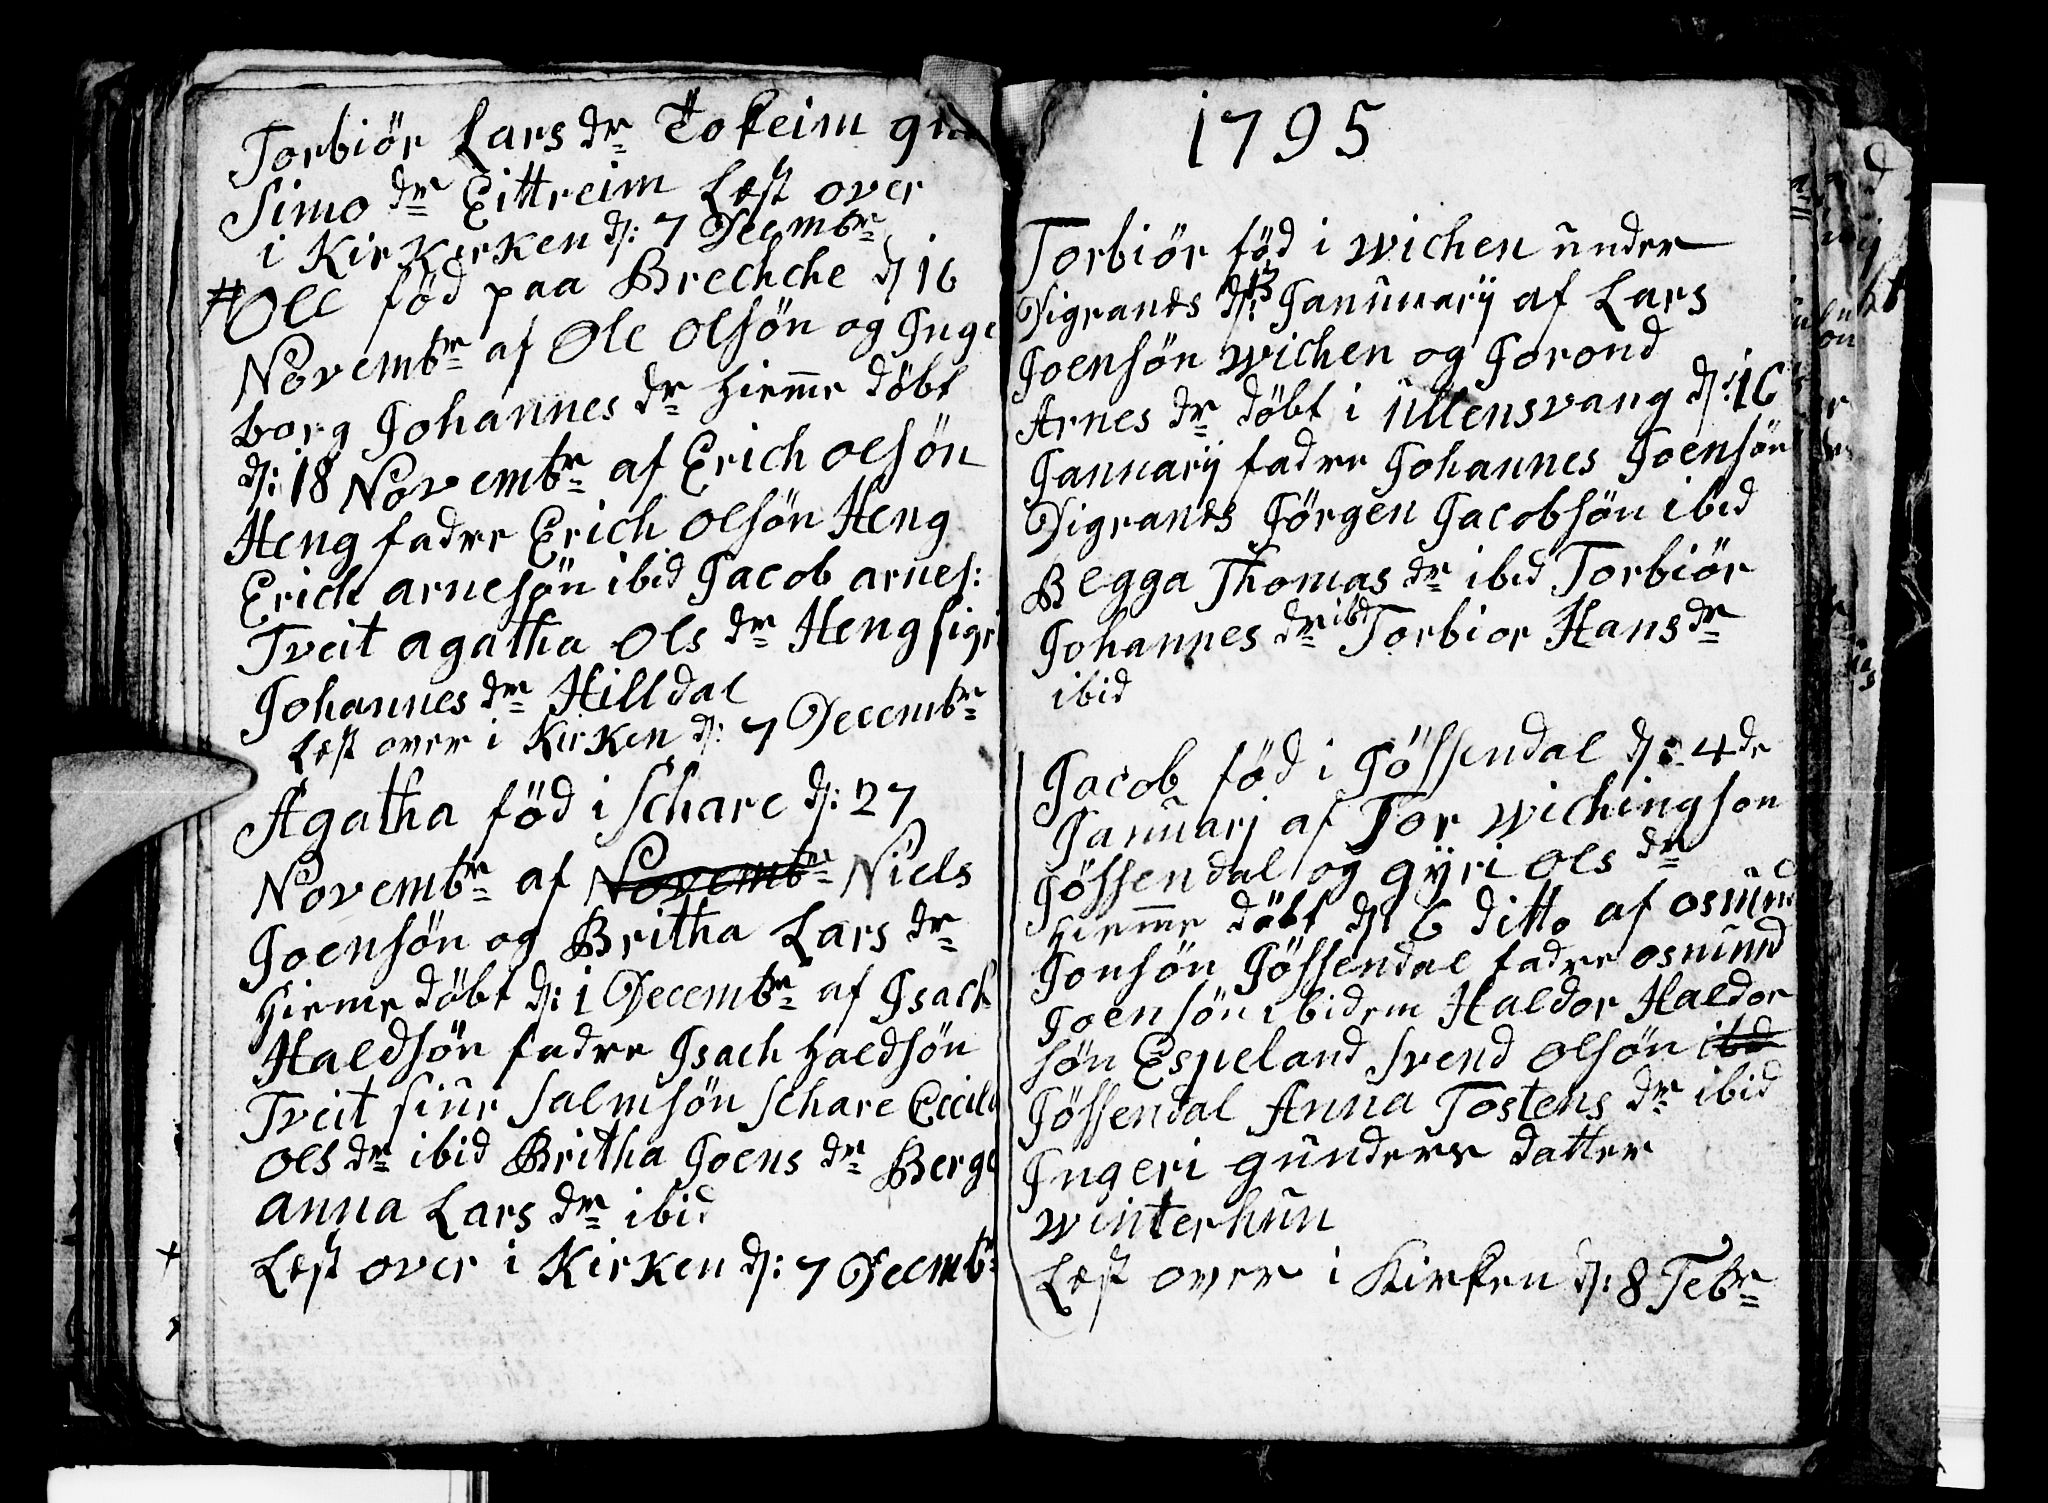 Torbiör Lars dr Tokeim
Simo dr Eittreim Læst over
i Kirkerken ds: 7 Decmbr
# Ole föd paa Brechche ds 16
Novembr af Ole Olsön og Inge
borg Johannes dr hieme döbt
ds: 18 Novembr af Erich olsön
Heng fadre Erich olsön Heng
Erich arnesön ibid Jacob arnes:
Tveit agatha ols dr Heng sigri
Johannes dr Hilldal
Læst over i Kirken ds: 7 Decembr
Agatha föd i Schare ds: 27
Novembr af Novembr Niels
Joensön og Britha Lars dr
hieme döbt ds: 1 Decembr af Isach
Haldsön fadre Isach haldsön
Tveit siur salmsön Schare Eccili
ols dr ibid Britha Joens dr Berge
anna Lars dr ibid
Læst over i Kirken ds: 7 Decmbr
1795
Torbiör föd i wichen under
Digranes ds: 13 Januuarij af Lars
Joensön wichen og Jorond
Arnes dr döbt i ullensvang ds: 16
Januarij fadre Johannes Joensön
Digranes Jörgen Jacobsön ibid
Begga Thomas dr ibid Torbiör
Johannes dr ibd Torbior Hans dr
ibid
Jacob föd i Jössendal ds: 4de
Januarj af Tor wichingson
Jössendal og gyri ols dr
hieme döbt ds 6 ditto af osmund
Jonsön Jössendal fadre osmund
Joensön ibidem Haldor Haldor
sön Espeland Svend olsön ibd
Jössendal Anna Tostens dr ibid
Ingeri gunders datter
winterhun
Læst over i Kirken ds: 8 Febr